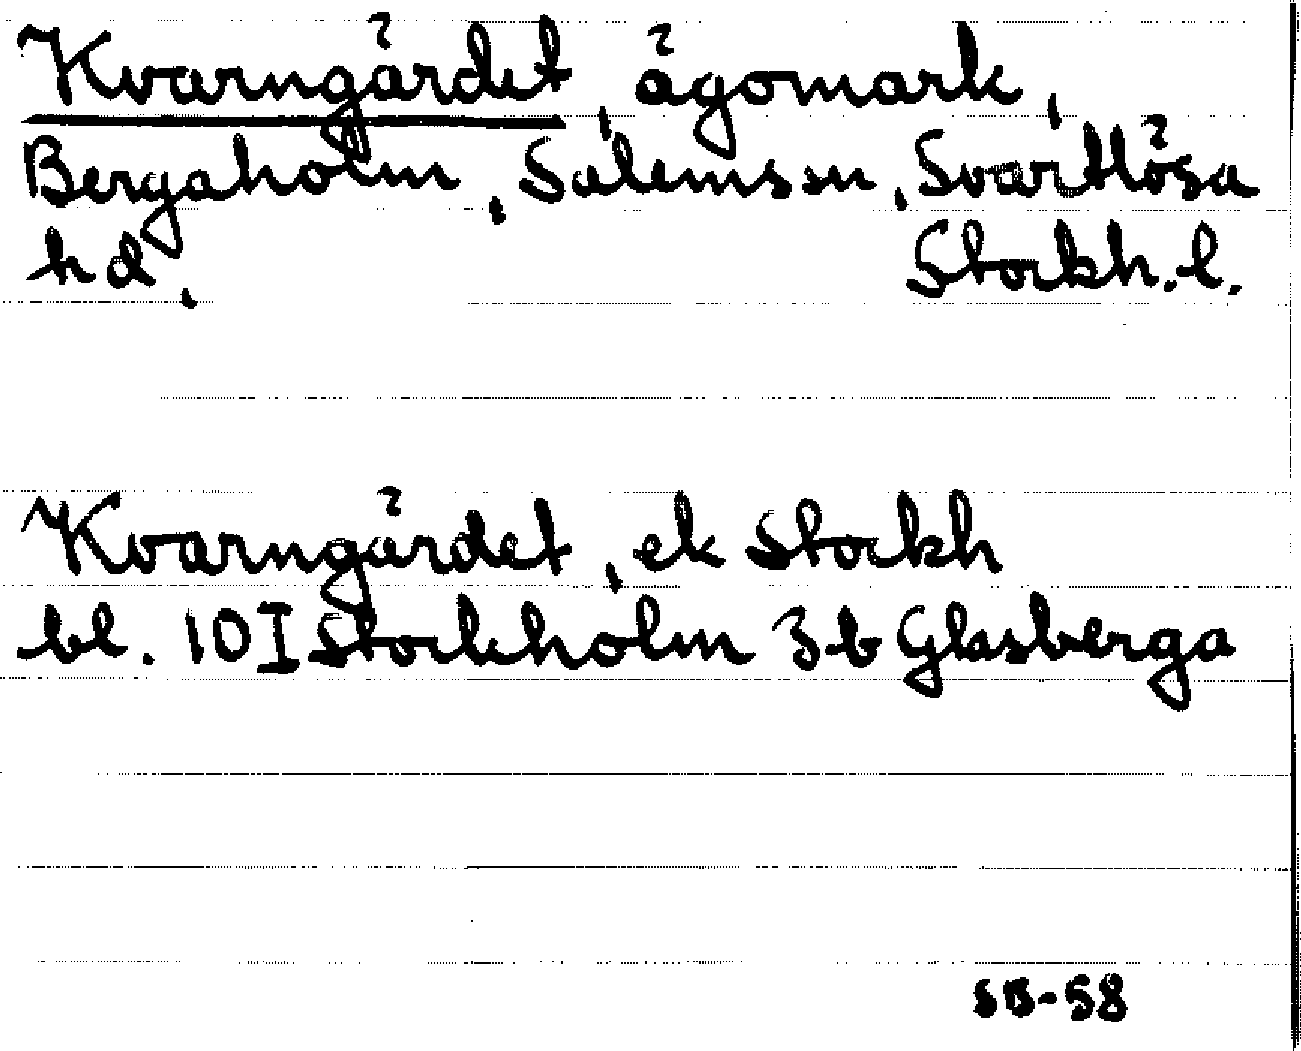 Kvarngärdet, ägomark,
Bergaholm, Salems sn, Svartlösa
hd, Stockh. l.
Kvarngärdet, ek Stockh
bl. 10I Stockholm 3b Glasberga
SB-58